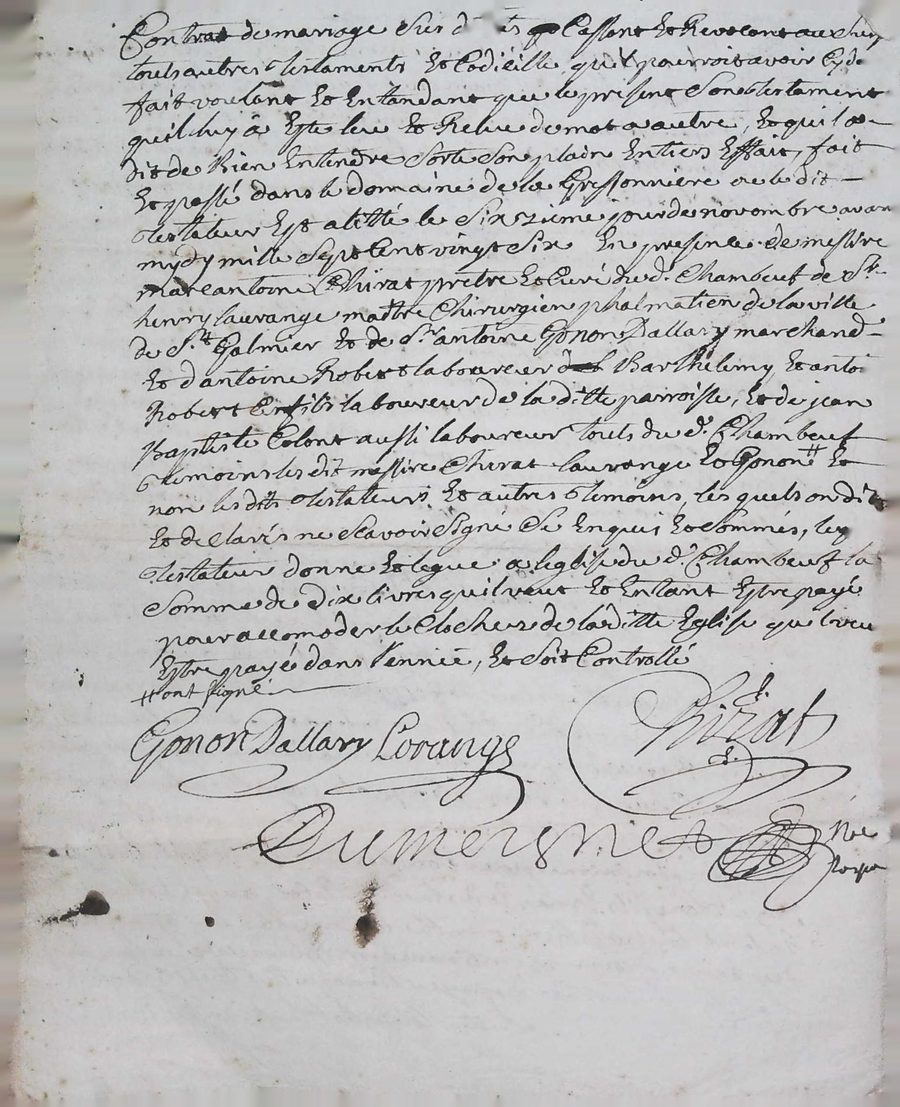 Contrat de mariage sus d tés Cassant Et Revocant au
touts autres testaments Et Codicille quil pourroit avoir Cy de
fait voulant Et Entandant que le présent Son testament
quil luy â Este leu Et Releu de mot a autre, Et quil a
dit de Bien Entendre Sorte Son plain Entiers Effait, fait
Et passé dans le domaine de la Gressonniere ou le dit
testateur Est alitté le Six zième jour de novembre avan
mydy mille Sept Cent vingt Six En presence de messire
marc antoine Chirat prètre Et Curé du d. Chambeuf de Sr.
henry laurange maître Chirurgien de la ville
de St. Galmier Et de Sr. antoine Gonon Dallary marchand
Et d antoine Robert laboureur Barthélémy Et antoi
Robert fils laboureur de la ditte parroisse, Et de jean
Baptiste Colont aussi laboureur touts du d. Chambeuf
temoins les dit messire Chirat laurange Et Gonon # Et
non les dits testateurs Et autres témoins, les quels on dit
Et déclarés ne Scavoir Signé de Enquis Et Sommés, ley
testateur donne Et legue a leglise du d. Chambeuf la
Somme de Dix livres quil veut Et Entant Estre payé
pour accomoder le Clocher de la ditte Eglise
Estre payé dans l'ennée, Et Soit Controllé
# ont signé
Gonon Dallary Lorange Chirat
Dumeignet Nre
Royal